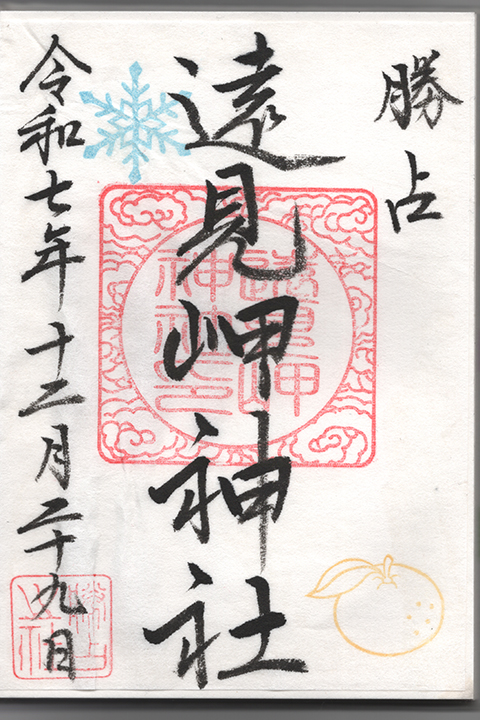 勝占
遠見岬神社
令和七年十二月二十九日
遠見岬
神社之印